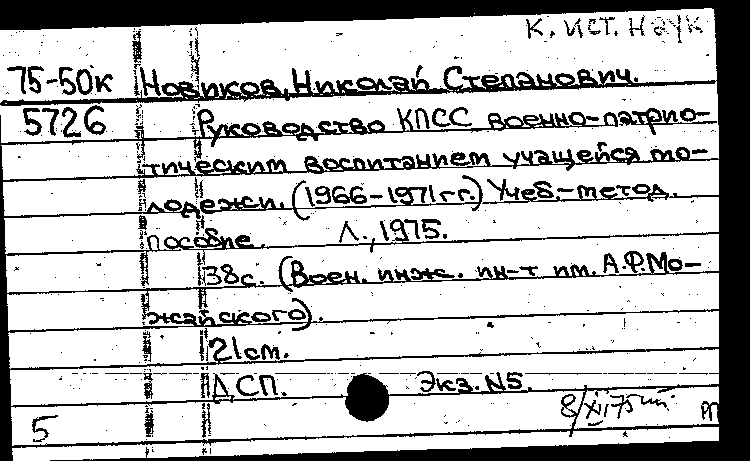 К. ист. наук
75-50к Новиков, Николай Степанович.
5726 Руководство КПСС военно-патрио-
тическим воспитанием учащейся мо-
лодежи. (1966-1971гг.) Учеб.-метод.
пособие. Л., 1975.
38с. (Воен. инж. ин-т им. А.Ф.Мо-
жайского).
21см.
ДСП. Экз. N5.
8/XII75
5